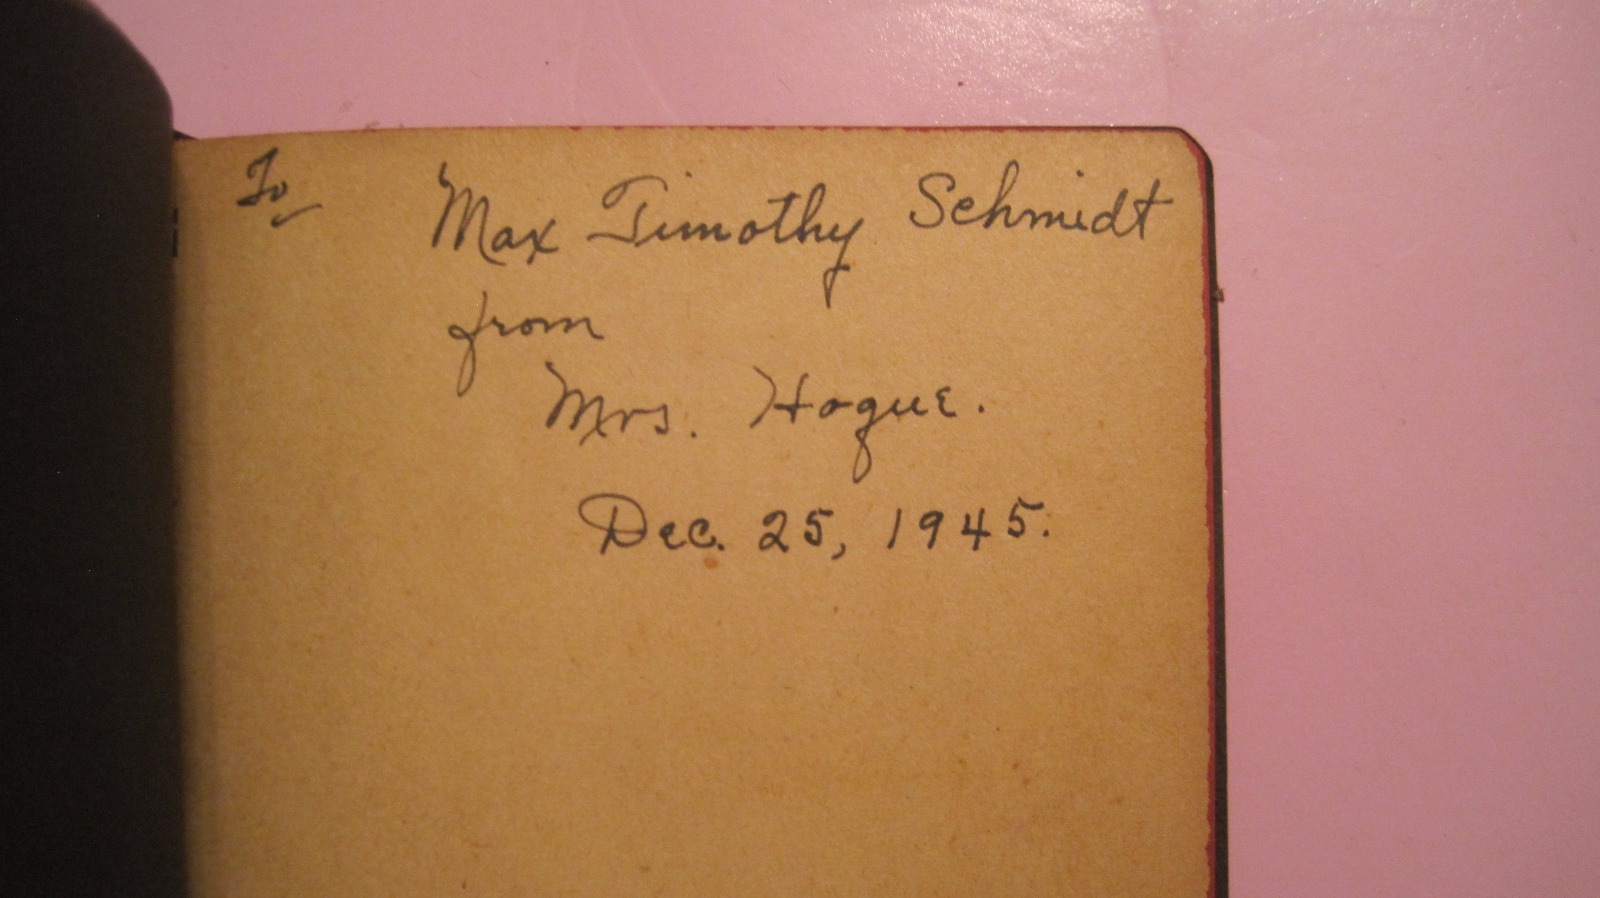 To Max Timothy Schmidt
from
Mrs. Hogue.
Dec. 25, 1945.